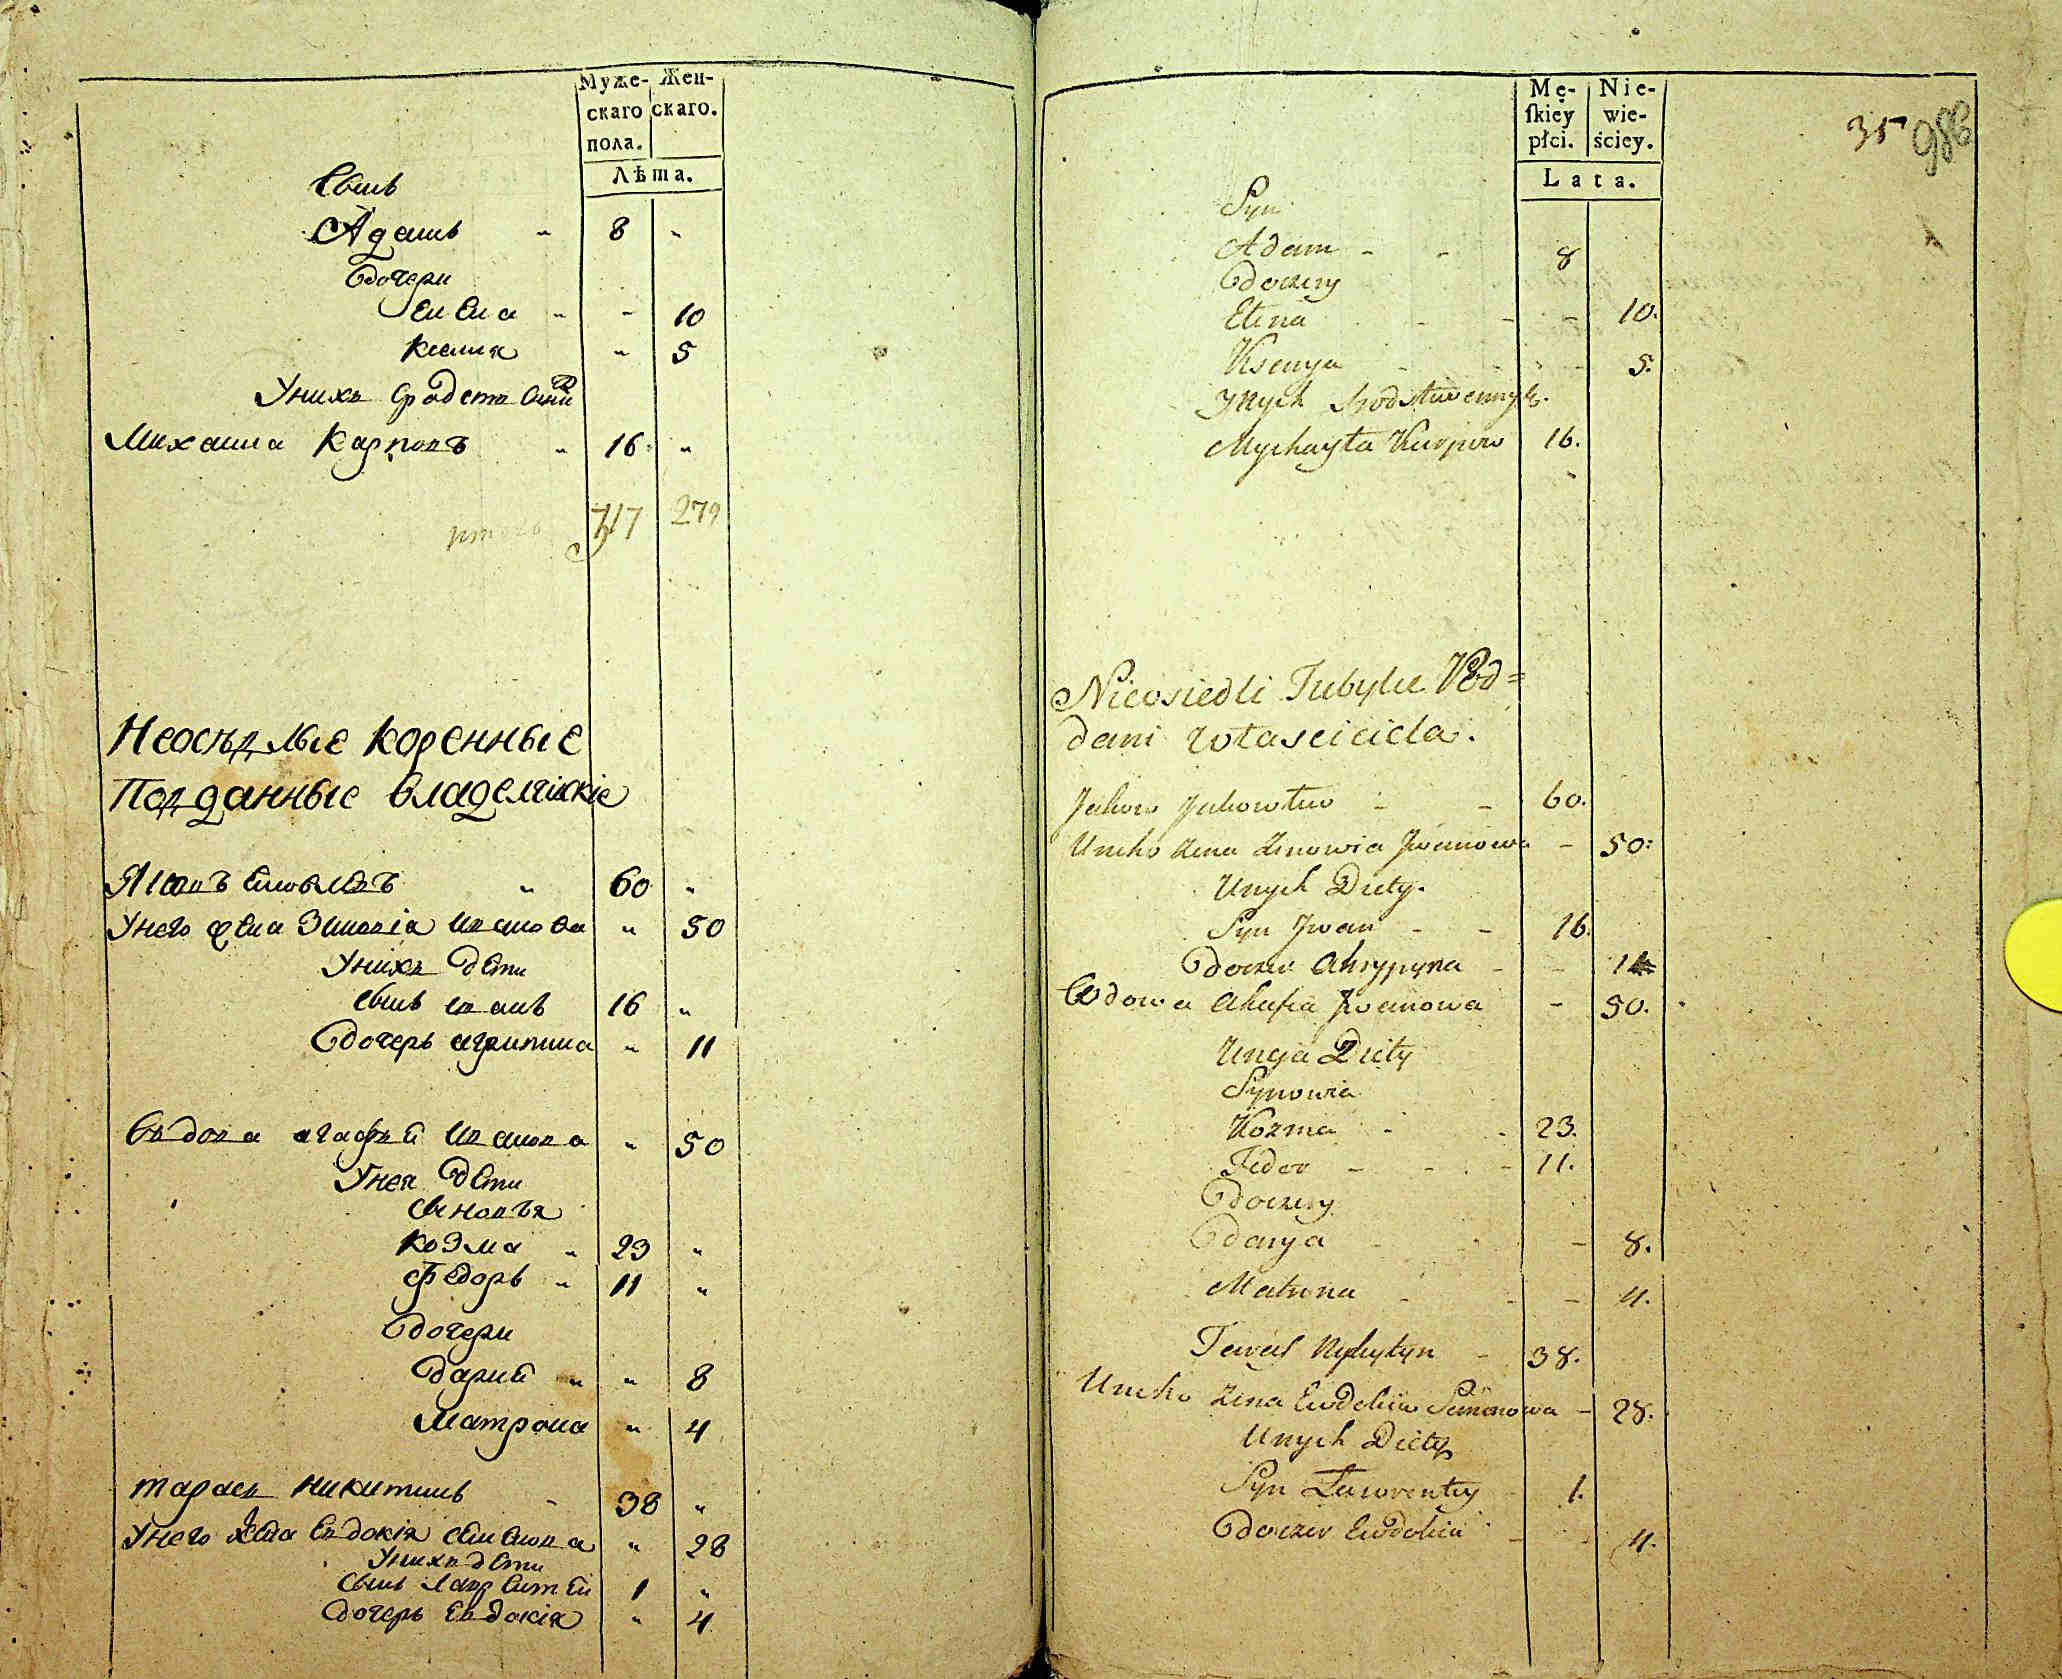 Муже- Жен-
скаго скаго.
пола.
Лѣта.
Сынъ
Адамъ " 8 "
Дочери
Елена " " 10
Ксенія " 5
У нихъ сродственникъ
Михайла Карповъ " 16 "
итого 717 279
Неоседлые коренные
Подданные владелческіе
Яковъ Яковлевъ " 60 "
У него жена Зиновія Иванова " 50
У нихъ дети
сынъ Иванъ 16 "
Дочерь Агрипина " 11
Вдова Агафія Иванова " 50
У нея дети
сыновья
Козма " 23 "
Федоръ " 11 "
Дочери
Дарія " " 8
Матрона " 4
Тарасъ Никитинъ " 38 "
У него жена Евдокія Семенова " 28
У нихъ дети
сынъ Лаврентей 1 "
дочерь Евдокія " 4
Mę- Nie-
skiey wie-
płci. ściey.
Lata.
35 986
Syn
Adam - - 8
Doczery
Elena - - - 10.
Ksenya - - 5.
Ynych Srodstwennyk.
Mychayła Karpow 16.
Nieosiedli Tubylce Pod=
dani własciciela.
Jakow Jakowlew - - 60.
Uneho zena Zenowia Jwanowa - 50:
Unych Diety.
Syn Jwan - - 16.
Doczer Ahrypyna - - 11
Wdowa Ahafia Jwanowa - 50.
Uneja Diety
Synowia
Kozma - - 23.
Fedor - - - 11.
Doczery
Darya - - - 8.
Matrona - - - 4.
Taras Nykytyn - 38.
Uneho zena Ewdokia Semenowa - 28.
Unych Diety
Syn Lawrentey - 1.
Doczer Ewdokia - - 4.